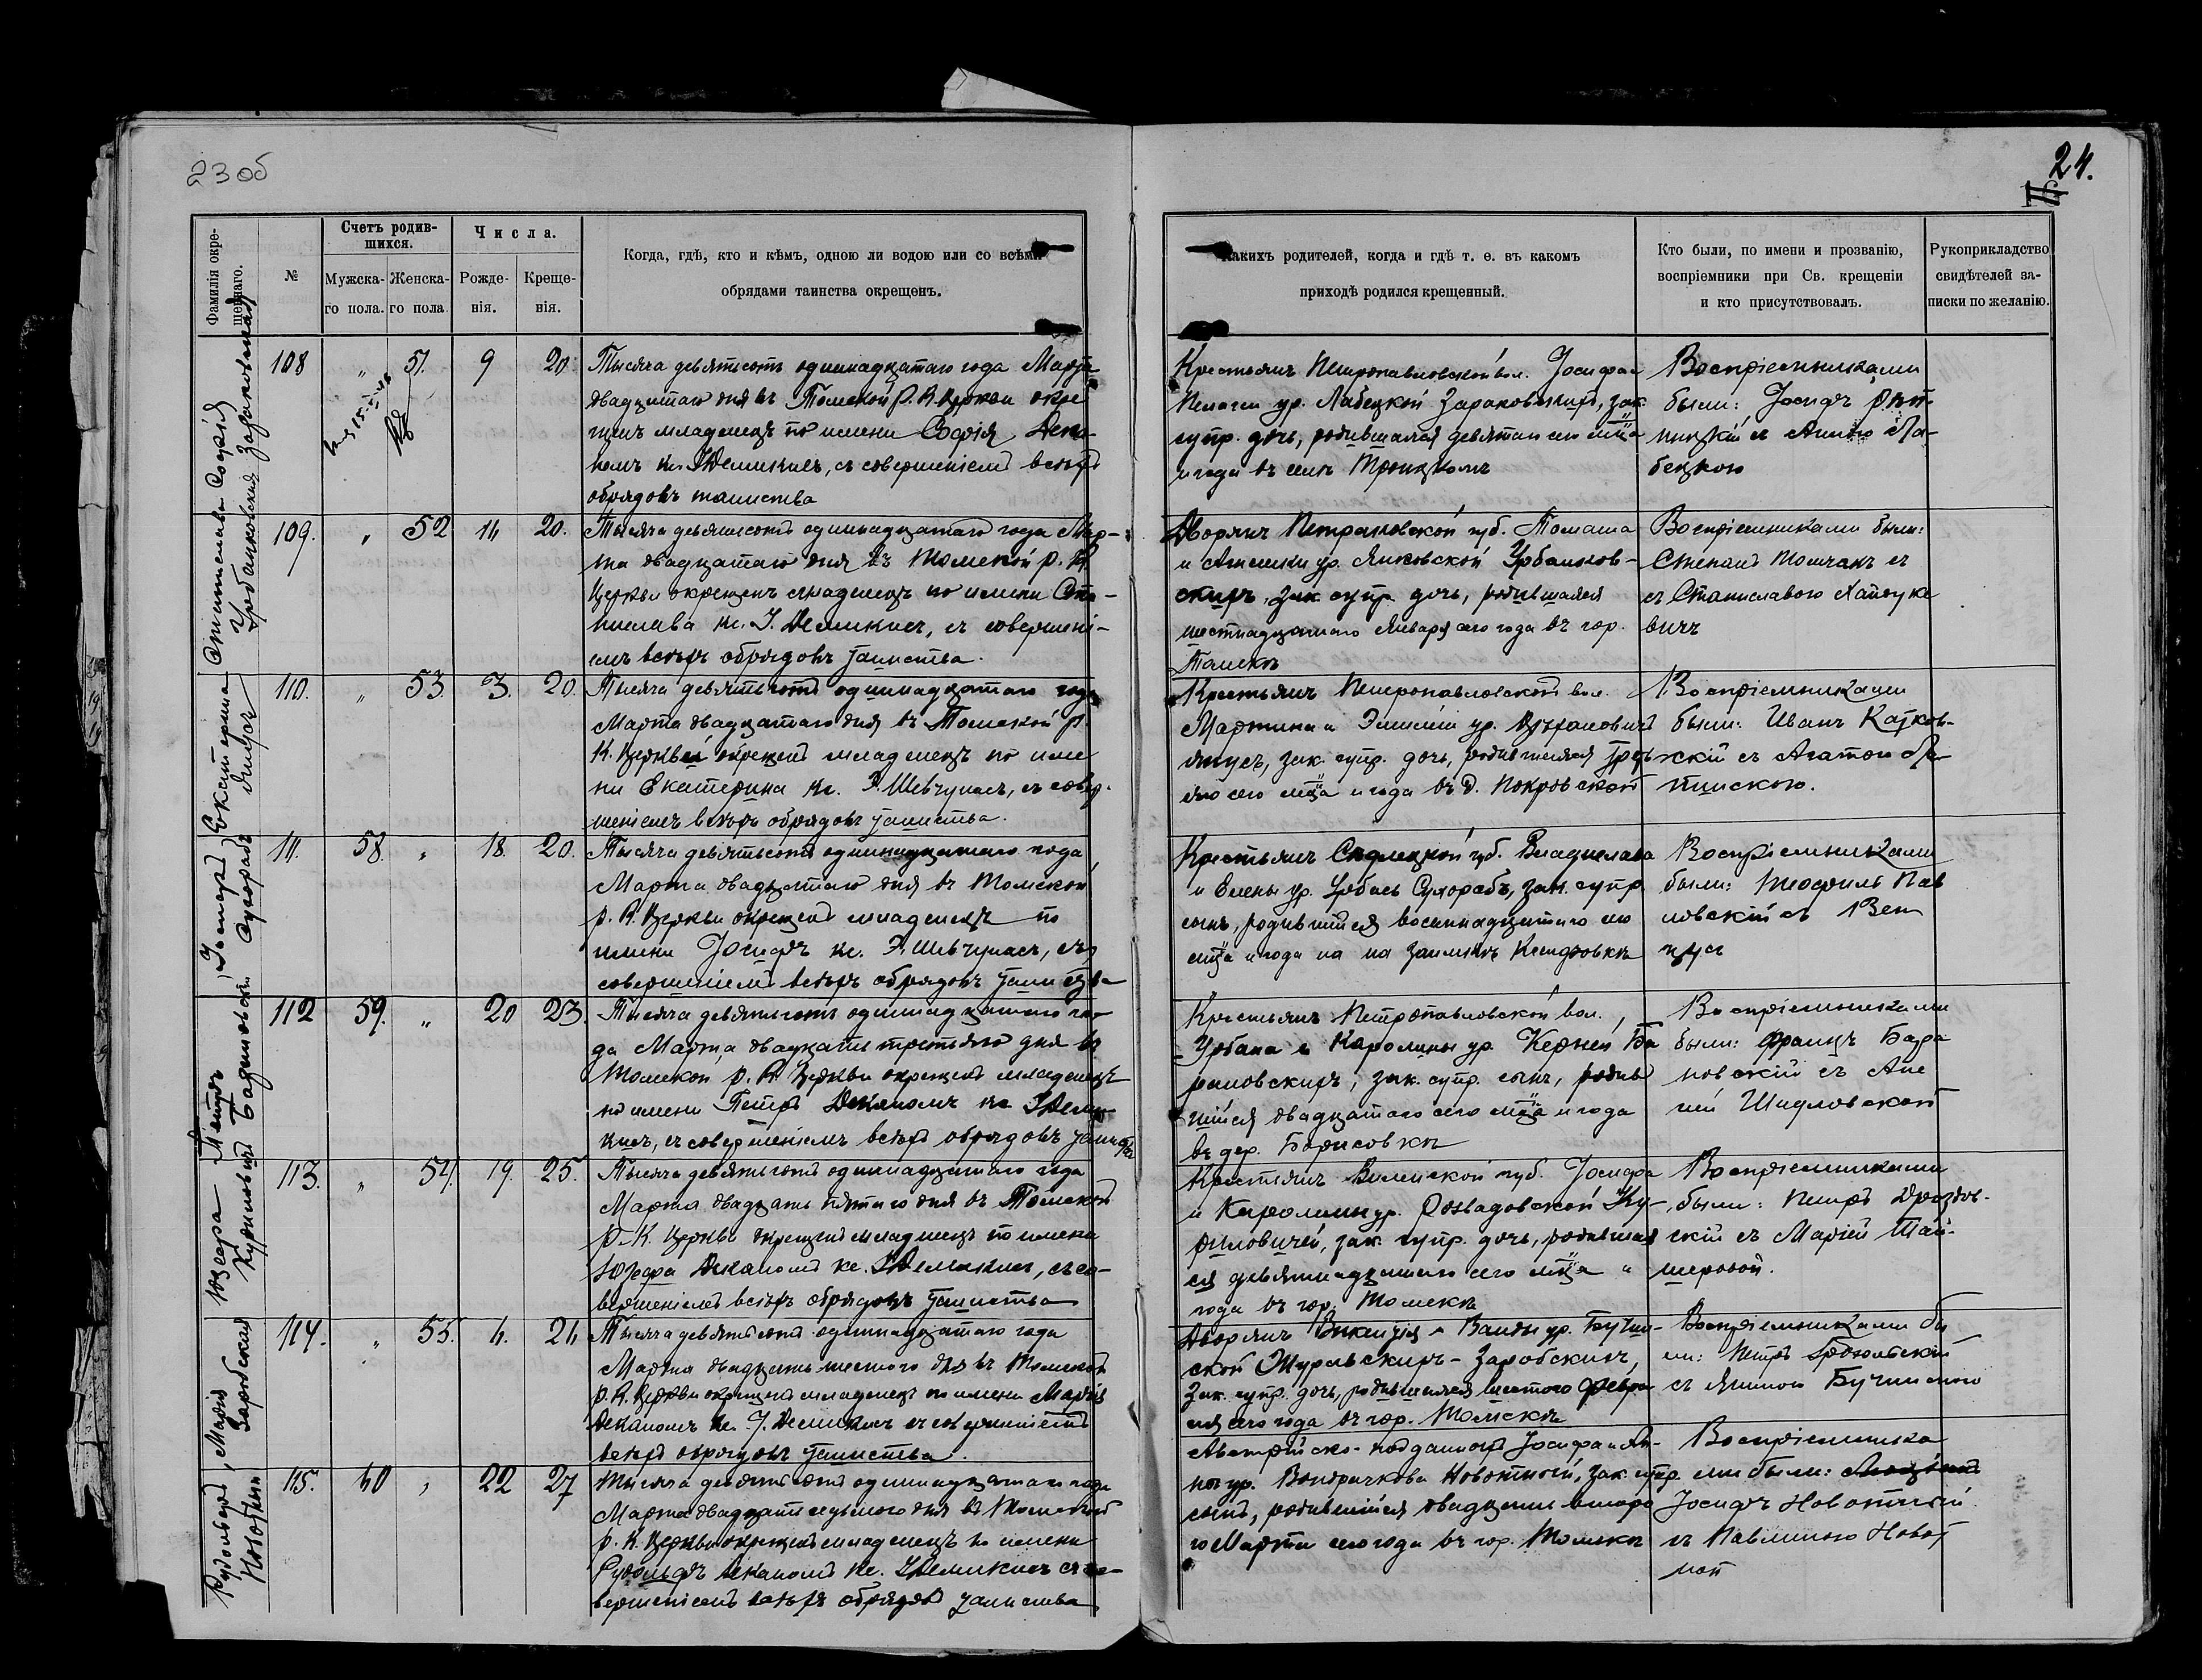 23 об
24.
Фамилія окре-
щеннаго.
№
Счетъ родив-
шихся.
Мужска-
го пола.
Женска-
го пола
Числа.
Рожде-
нія.
Креще-
нія.
Когда, гдѣ, кто и кѣмъ, одною ли водою или со всѣми
обрядами таинства окрещенъ.
Какихъ родителей, когда и гдѣ т. е. въ какомъ
приходѣ родился крещенный.
Кто были, по имени и прозванію,
воспріемники при Св. крещеніи
и кто присутствовалъ.
Рукоприкладство
свидѣтелей за-
писки по желанію.
Софія
108 " 51. 9 20.
Тысяча девятьсотъ одиннадцатаго года Марта
двадцатаго дня въ Томской Р. К. Церкви окре
щенъ младенецъ по имени Софія Дека-
номъ кс. І Демикисъ, съ совершеніемъ всѣхъ
обрядовъ таинства
Крестьянъ Петропавловской вол. Іосифа и
Пелагеи ур. Лабецкой зак.
супр. дочь, родившаяся девятаго сего мца
и года въ Троицкомъ
Воспріемниками
были: Іосифъ
съ Ла-
бецкою
Станислава
Урбанковская
109. " 52 16 20.
Тысяча девятьсотъ одиннадцатаго года Мар-
та двадцатаго дня въ Томской р. К.
Церкви окрещенъ младенецъ по имени Ста-
нислава кс. І. Демикисъ, съ совершені-
емъ всѣхъ обрядовъ таинства.
Дворянъ Петраковской губ. Томаша
и ур. Янковской Урбанков-
скихъ, зак. супр. дочь, родившаяся
шестнадцатаго Января сего года въ гор.
Томскѣ
Воспріемниками были:
Степанъ Томчакъ съ
съ Станиславою Хайдуке
вичъ
Екатерина
110. " 53. 3. 20.
Тысяча девятьсотъ одиннадцатаго года
Марта двадцатаго дня въ Томской р.
К. Церкви окрещенъ младенецъ по име
ни Екатерина кс. Э. Шевчунасъ, съ совер-
шеніемъ всѣхъ обрядовъ таинства.
Крестьянъ Петропавловской вол.
Мартина и Эмиліи ур.
зак. супр. дочь, родившаяся треть
яго сего мца и года въ д. Покровской
Воспріемниками
были: Иванъ Катков-
скій съ Агатою
Іосифъ
Сухорабъ
111. 58. " 18. 20.
Тысяча девятьсотъ одиннадцатаго года
Марта двадцатаго дня въ Томской
р. К. Церкви окрещенъ младенецъ по
имени Іосифъ кс. Э. Шевчунасъ, съ
совершеніемъ всѣхъ обрядовъ таинства
Крестьянъ Сѣдлецкой губ. Владислава
и Елены ур. Урбась Сухорабъ, зак. супр.
сынъ, родившійся восемнадцатаго сего
мца и года на на заимкѣ
Воспріемниками
были: Теофиль Пав
ловскій съ
Петръ
Барановскій
112 59. " 20 23.
Тысяча девятьсотъ одиннадцатаго го-
да Марта двадцать третьяго дня въ
Томской р. К. Церкви окрещенъ младенецъ
по имени Петръ Деканомъ кс І Деми-
кисъ, съ совершеніемъ всѣхъ обрядовъ таинства
Крестьянъ Петропавловской вол.,
Урбана и Каролины ур. Керней Ба
рановскихъ, зак. супр. сынъ, родив
шійся двадцатаго сего мца и года
въ дер. Борисовкѣ
Воспріемниками
были: Францъ Бара
новскій съ Ане
лей Шидловской
Юзефа
113. " 54. 19. 25.
Тысяча девятьсотъ одиннадцатаго года
Марта двадцать пятаго дня въ Томской
р. К. Церкви окрещенъ младенецъ по имени
Юзефа Деканомъ кс. І Демикисъ, съ со-
вершеніемъ всѣхъ обрядовъ таинства
Крестьянъ Виленской губ. Іосифа
и Каролины ур. Розвадовской Ку-
риловичей, зак. супр. дочь, родившая
ся девятнадцатаго сего мца и
года въ гор. Томскѣ
Воспріемниками
были: Петръ Дроздов-
скій съ Маріей Тай-
шеровой.
Марія
114. " 55. 6. 26
Тысяча девятьсотъ одиннадцатаго года
Марта двадцать шестого дня въ Томской
р. К. Церкви окрещенъ младенецъ по имени Марія
Деканомъ кс. І. Демикисъ съ совершеніемъ
всѣхъ обрядовъ таинства.
Дворянъ Викентія и Ванды ур. Бучин-
ской Журавскихъ-Зарэбскихъ,
зак. супр. дочь, родившаяся шестого Февра
ля сего года въ гор. Томскѣ
Воспріемниками бы
ли: Петръ
съ Яниною Бучинскою
Рудольфъ
Новотный
115. 60 " 22 27
Тысяча девятьсотъ одиннадцатаго года
Марта двадцать седьмого дня въ Томской
р. К. Церкви окрещенъ младенецъ по имени
Рудольфъ Деканомъ кс. І Демикисъ съ со-
вершеніемъ всѣхъ обрядовъ таинства
Австрійско-подданныхъ Іосифа и Ан-
ны ур. Вондрачкова Новотный, зак. супр.
сынъ, родившійся двадцать второ
го Марта сего года въ гор. Томскѣ
Воспріемника
ми были:
Іосифъ Новотный
съ Павлиною Новот
ной